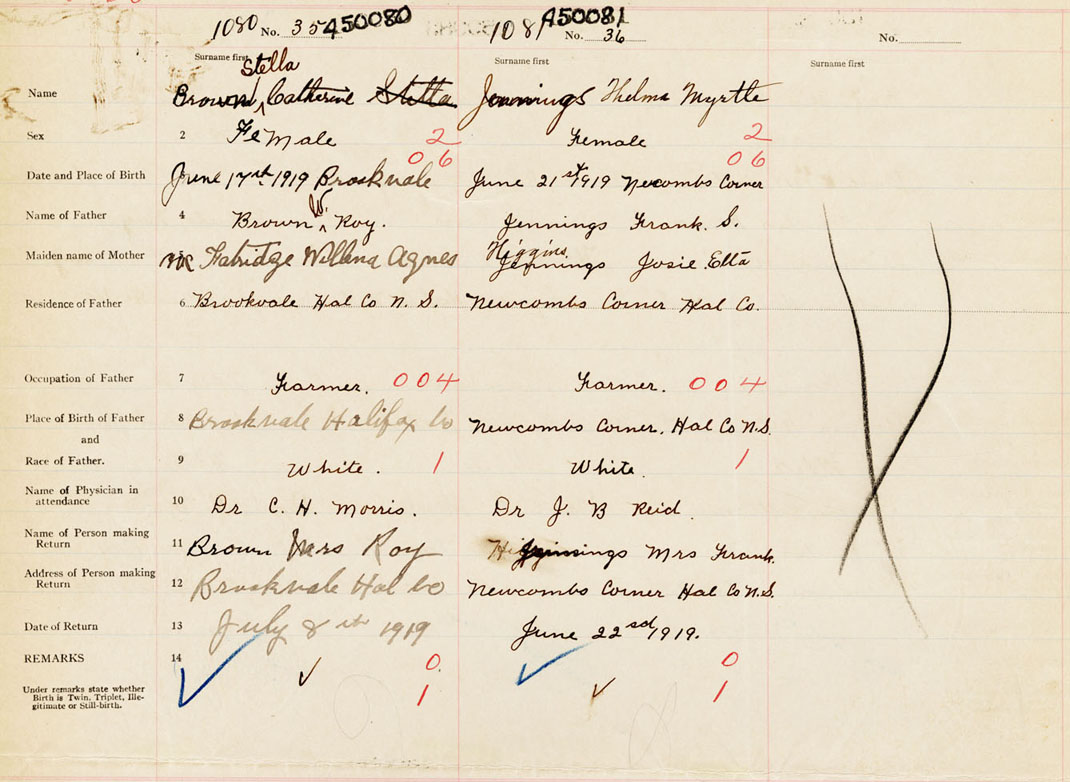 1080 No. 35 450080
1081 No. 36 A50081
No.
Surname first Stella
Surname first
Surname first
Name Brown, Catherine Stella Jennings Thelma Myrtle
Sex 2 FeMale 2 Female 2
06 06
Date and Place of Birth June 17th 1919 Brookvale June 21st 1919 Necombs Corner
Name of Father 4 Brown W. Roy. Jennings Frank. S.
Higgins
Maiden name of Mother Willena Agnes Jennings Josie Etta
Residence of Father 6 Brookvale Hal Co N. S. Newcombs Corner Hal Co.
Occupation of Father 7 Farmer. 004 Farmer. 004
Place of Birth of Father 8 Brookvale Halifax Co Newcombs Corner. Hal Co N.S.
and
Race of Father. 9 White. 1 White. 1
Name of Physician in
attendance 10 Dr C. H. Morris. Dr J. B Reid.
Name of Person making
Return 11 Brown Mrs Roy Mrs Frank.
Address of Person making
Return 12 Brookvale Hal Co Newcombs Corner Hal Co N.S.
Date of Return 13 July 8th 1919 June 22sd 1919.
REMARKS 14 0. 0
Under remarks state whether
Birth is Twin, Triplet, Ille-
gitimate or Still-birth. 1 1